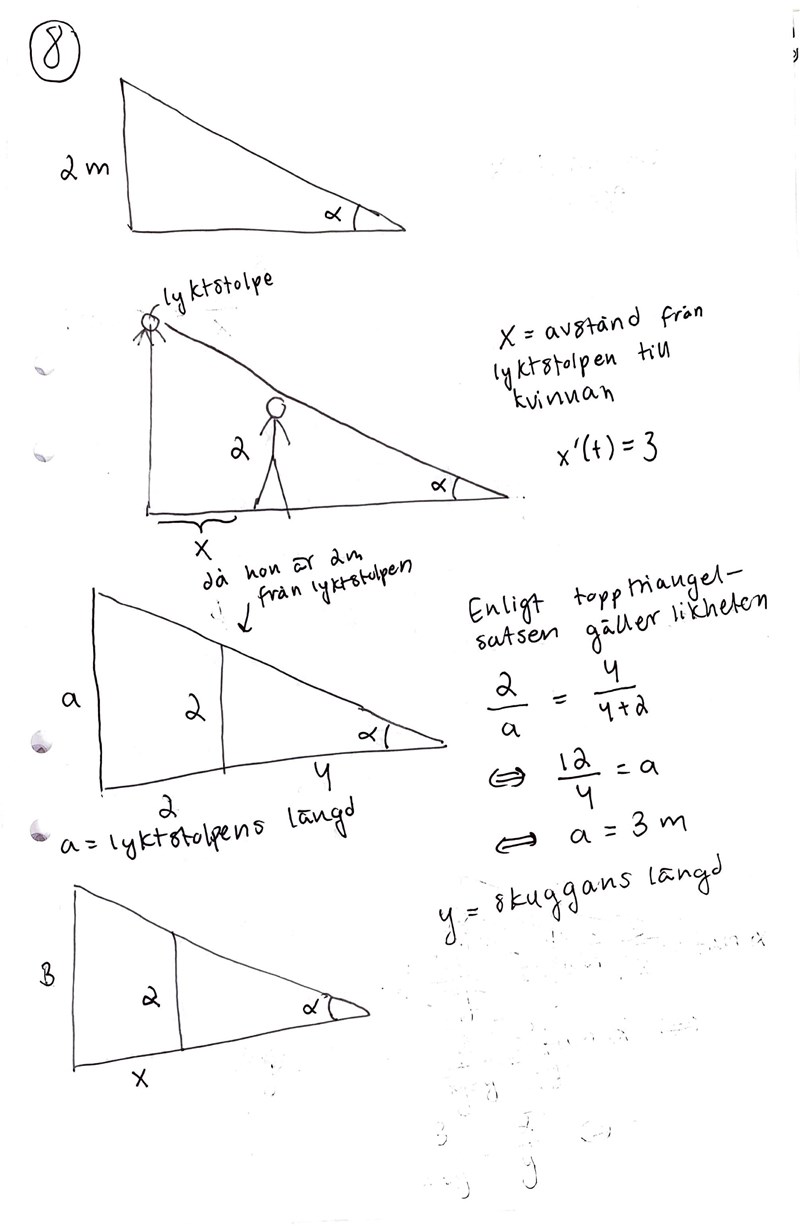 8
2 m
α
lyktstolpe
x = avstånd från
lyktstolpen till
kvinnan
x'(t) = 3
2
α
x
då hon är 2m
från lyktstolpen
a
2
α
2
4
a = lyktstolpens längd
Enligt topptriangel-
satsen gäller likheten
2/a = 4/(4+2)
⇔ 12/4 = a
⇔ a = 3 m
y = skuggans längd
B
2
α
x